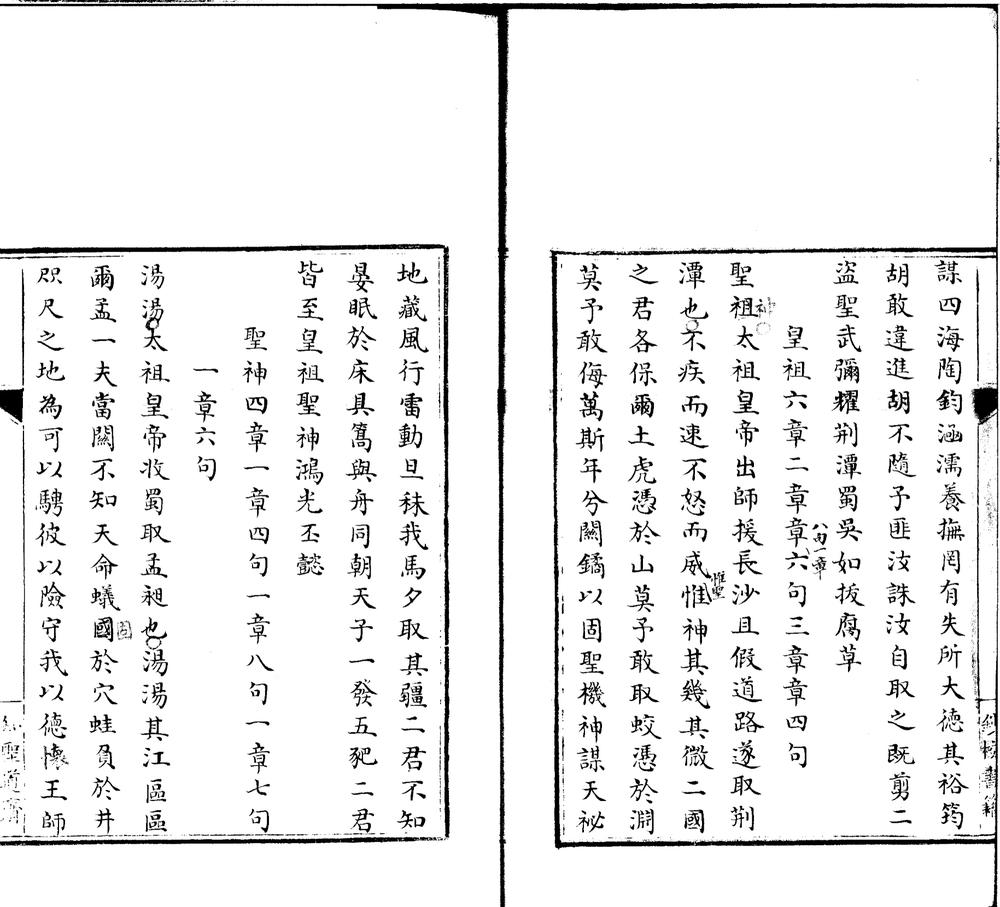 謀四海陶鈞涵濡養撫罔有失所大德其裕筠
胡敢違進胡不隨予匪汝誅汝自取之既剪二
盜聖武彌耀荆潭蜀吳如拔腐草
皇祖六章二章章六句三章章四句
八句一章
聖祖太祖皇帝出師援長沙且假道路遂取荆
神
潭也不疾而速不怒而威惟神其幾其微二國
惟聖
之君各保爾土虎憑於山莫予敢取蛟憑於淵
莫予敢侮萬斯年兮關鐍以固聖機神謀天祕
地藏風行雷動旦秣我馬夕取其疆二君不知
晏眠於床具篙與舟同朝天子一發五豝二君
皆至皇祖聖神鴻光丕懿
聖神四章一章四句一章八句一章七句
一章六句
湯湯太祖皇帝收蜀取孟昶也湯湯其江區區
爾孟一夫當關不知天命蟻國於穴蛙負於井
固
咫尺之地為可以騁彼以險守我以德懷王師